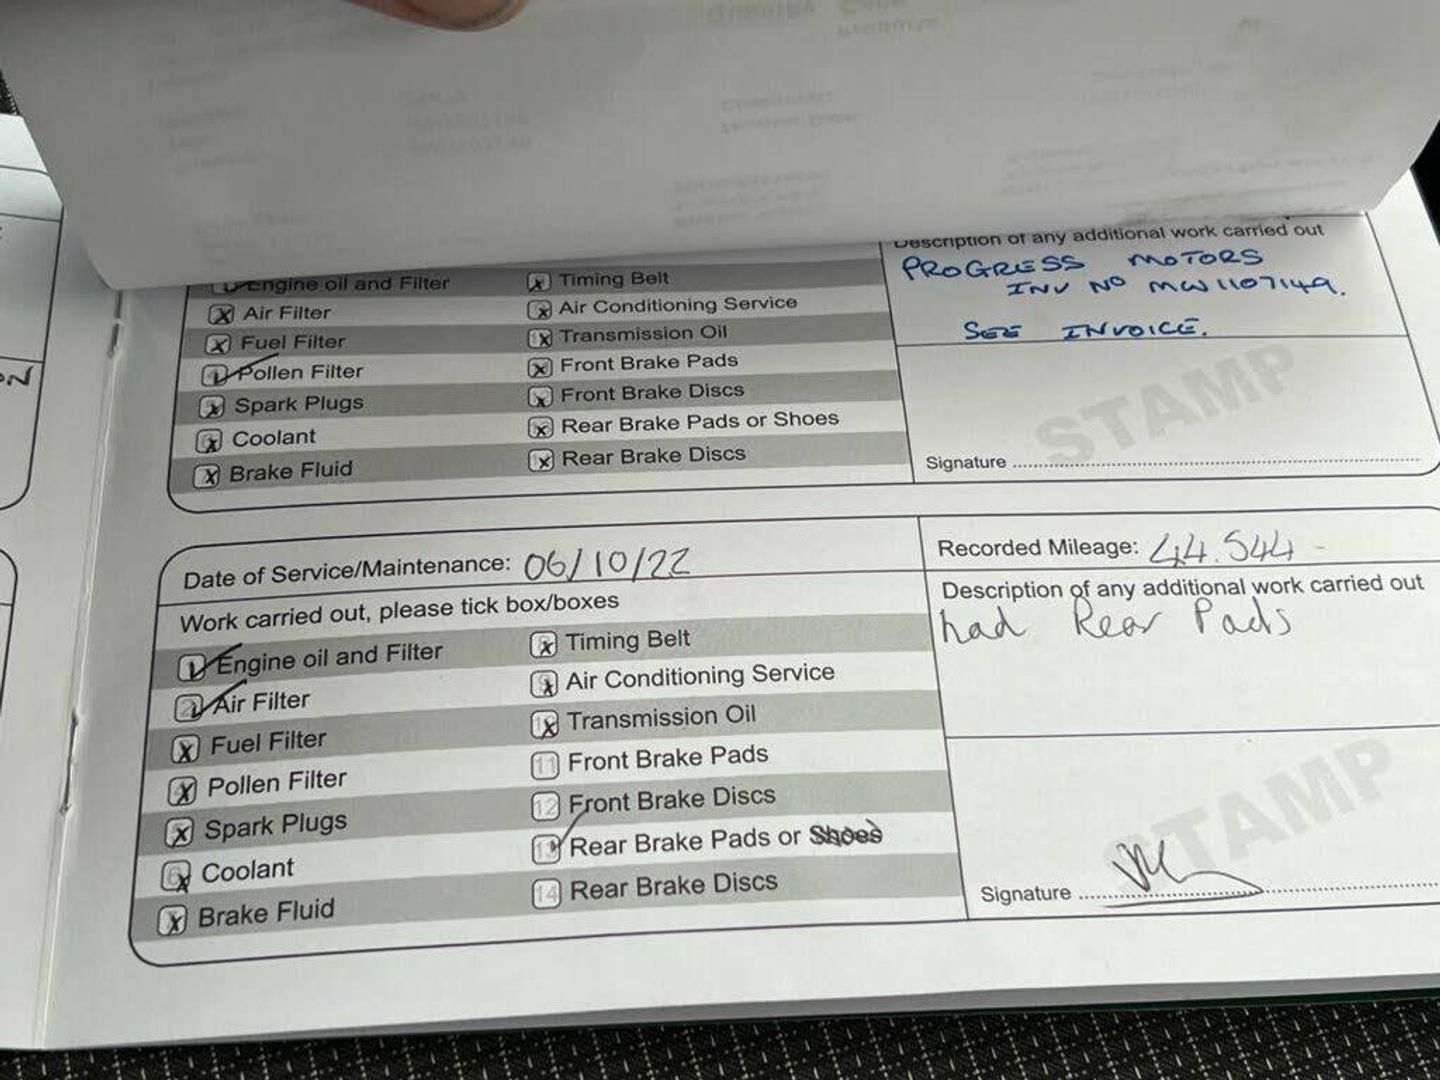 Description of any additional work carried out
PROGRESS MOTORS
INV NO MW1107149.
SEE INVOICE.
Engine oil and Filter
Air Filter
Fuel Filter
Pollen Filter
Spark Plugs
Coolant
Brake Fluid
Timing Belt
Air Conditioning Service
Transmission Oil
Front Brake Pads
Front Brake Discs
Rear Brake Pads or Shoes
Rear Brake Discs
STAMP
Signature
Date of Service/Maintenance: 06/10/22
Recorded Mileage: 44.544
Work carried out, please tick box/boxes
1 Engine oil and Filter
2 Air Filter
Fuel Filter
4 Pollen Filter
Spark Plugs
6 Coolant
Brake Fluid
Timing Belt
9 Air Conditioning Service
10 Transmission Oil
11 Front Brake Pads
12 Front Brake Discs
13 Rear Brake Pads or Shoes
14 Rear Brake Discs
Description of any additional work carried out
had Rear Pads
STAMP
Signature